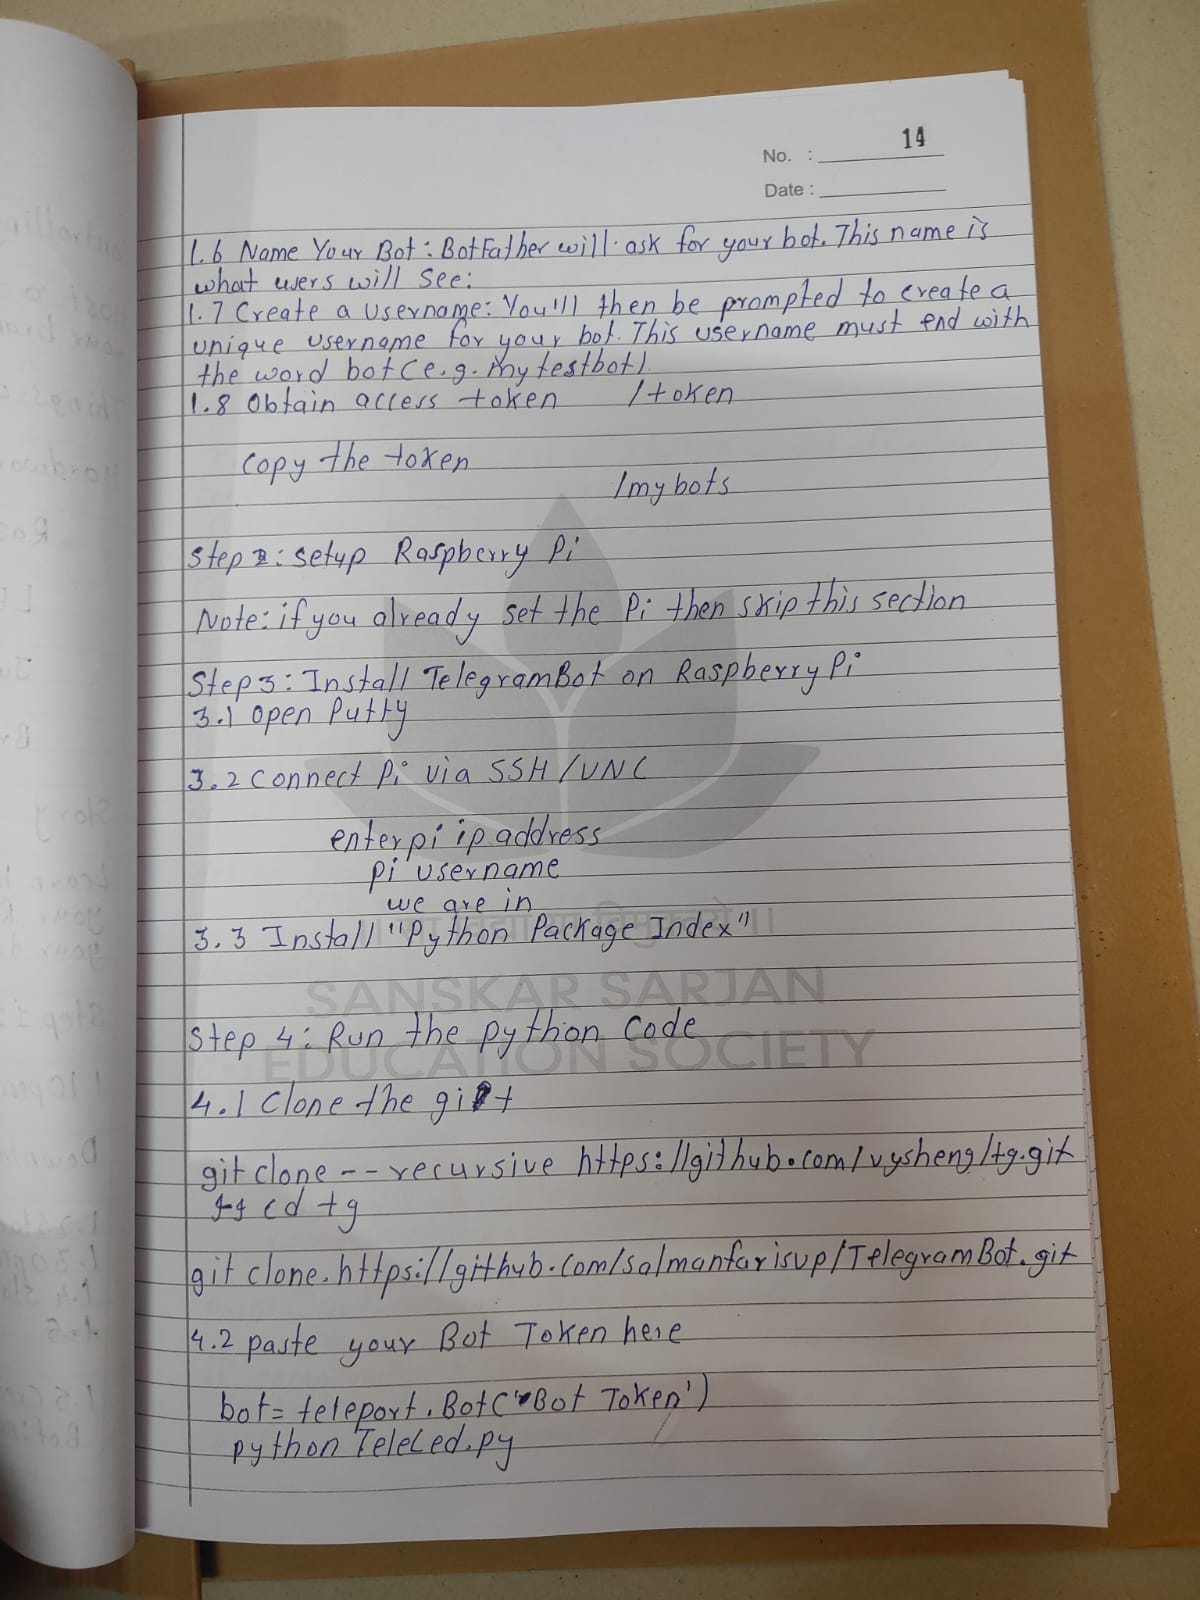 14
No. :
Date :
1.6 Name Your Bot : BotFather will ask for your bot. This name is
what users will see:
1.7 Create a Username: You'll then be prompted to create a
unique username for your bot. This username must end with
the word bot (e.g. mytestbot)
1.8 Obtain access token /token
copy the token
/mybots
Step 2: setup Raspberry Pi
Note: if you already set the Pi then skip this section
Step 3: Install TelegramBot on Raspberry Pi
3.1 open Putty
3.2 Connect Pi via SSH/VNC
enter pi ip address
pi username
we are in
3.3 Install "Python Package Index"
SANSKAR SARJAN
Step 4: Run the python Code
EDUCATION SOCIETY
4.1 Clone the git
git clone --recursive https://github.com/vysheng/tg.git
cd tg
git clone. https://github.com/salmanfarisvp/TelegramBot.git
4.2 paste your Bot Token here
bot= teleport.Bot('Bot Token')
python TeleLed.py